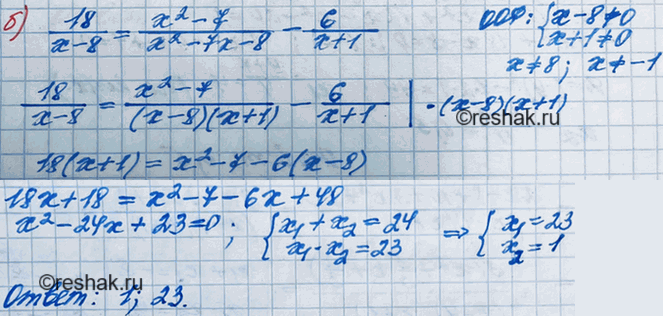 б) 18/(x-8) = (x²-7)/(x²-7x-8) - 6/(x+1)
ООФ: { x-8≠0
x+1≠0
x≠8; x≠-1
18/(x-8) = (x²-7)/((x-8)(x+1)) - 6/(x+1) | ·(x-8)(x+1)
©reshak.ru
18(x+1) = x²-7-6(x-8)
18x+18 = x²-7-6x+48
x²-24x+23=0; { x₁+x₂=24 ⇒ { x₁=23
x₁·x₂=23 x₂=1
©reshak.ru
Ответ: 1; 23.